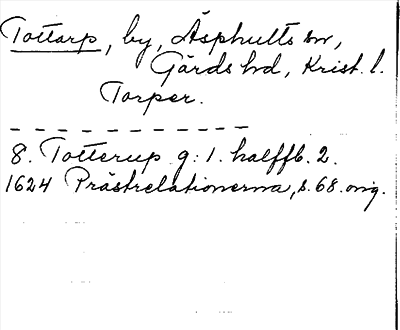 Tottarp, by, Äsphults sn,
Gärds hd, Krist. l.
Torper.
8. Totterup g: 1. halffb. 2.
1624 Prästrelationerna, s. 68. orig.